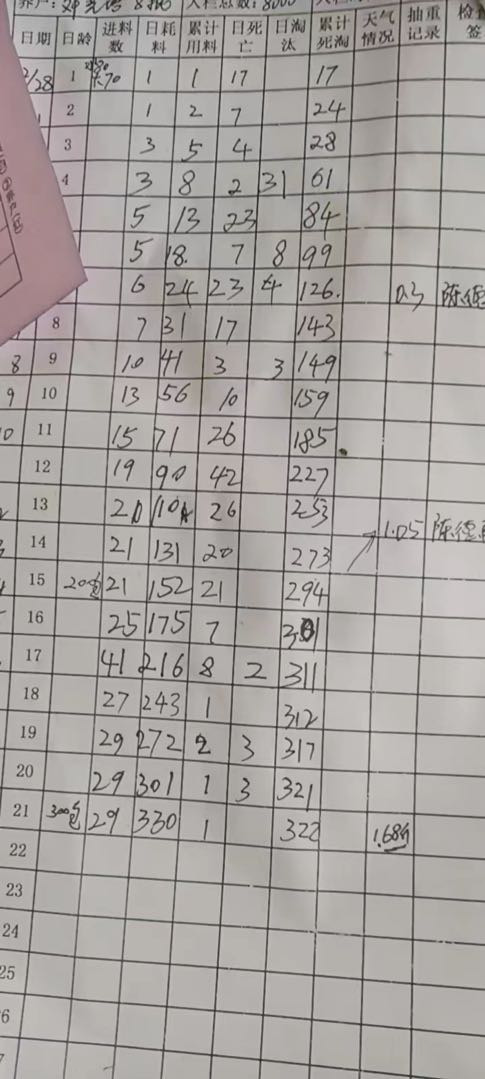 养户: 入栏总数: 8000
日期 日龄 进料数 日耗料 累计用料 日死亡 日淘汰 累计死淘 天气情况 抽重记录 检 签
2/28 1 1 1 17 17
2 1 2 7 24
3 3 5 4 28
4 3 8 2 31 61
5 13 23 84
5 18. 7 8 99
6 24 23 4 126. 0.3 陈德
8 7 31 17 143
8 9 10 41 3 3 149
9 10 13 56 10 159
10 11 15 71 26 185
12 19 90 42 227
13 20 110 26 253
14 21 131 20 273 1.05 陈德
15 200包 21 152 21 294
16 25 175 7 301
17 41 216 8 2 311
18 27 243 1 312
19 29 272 2 3 317
20 29 301 1 3 321
21 300包 29 330 1 322 1.68
22
23
24
25
6
7